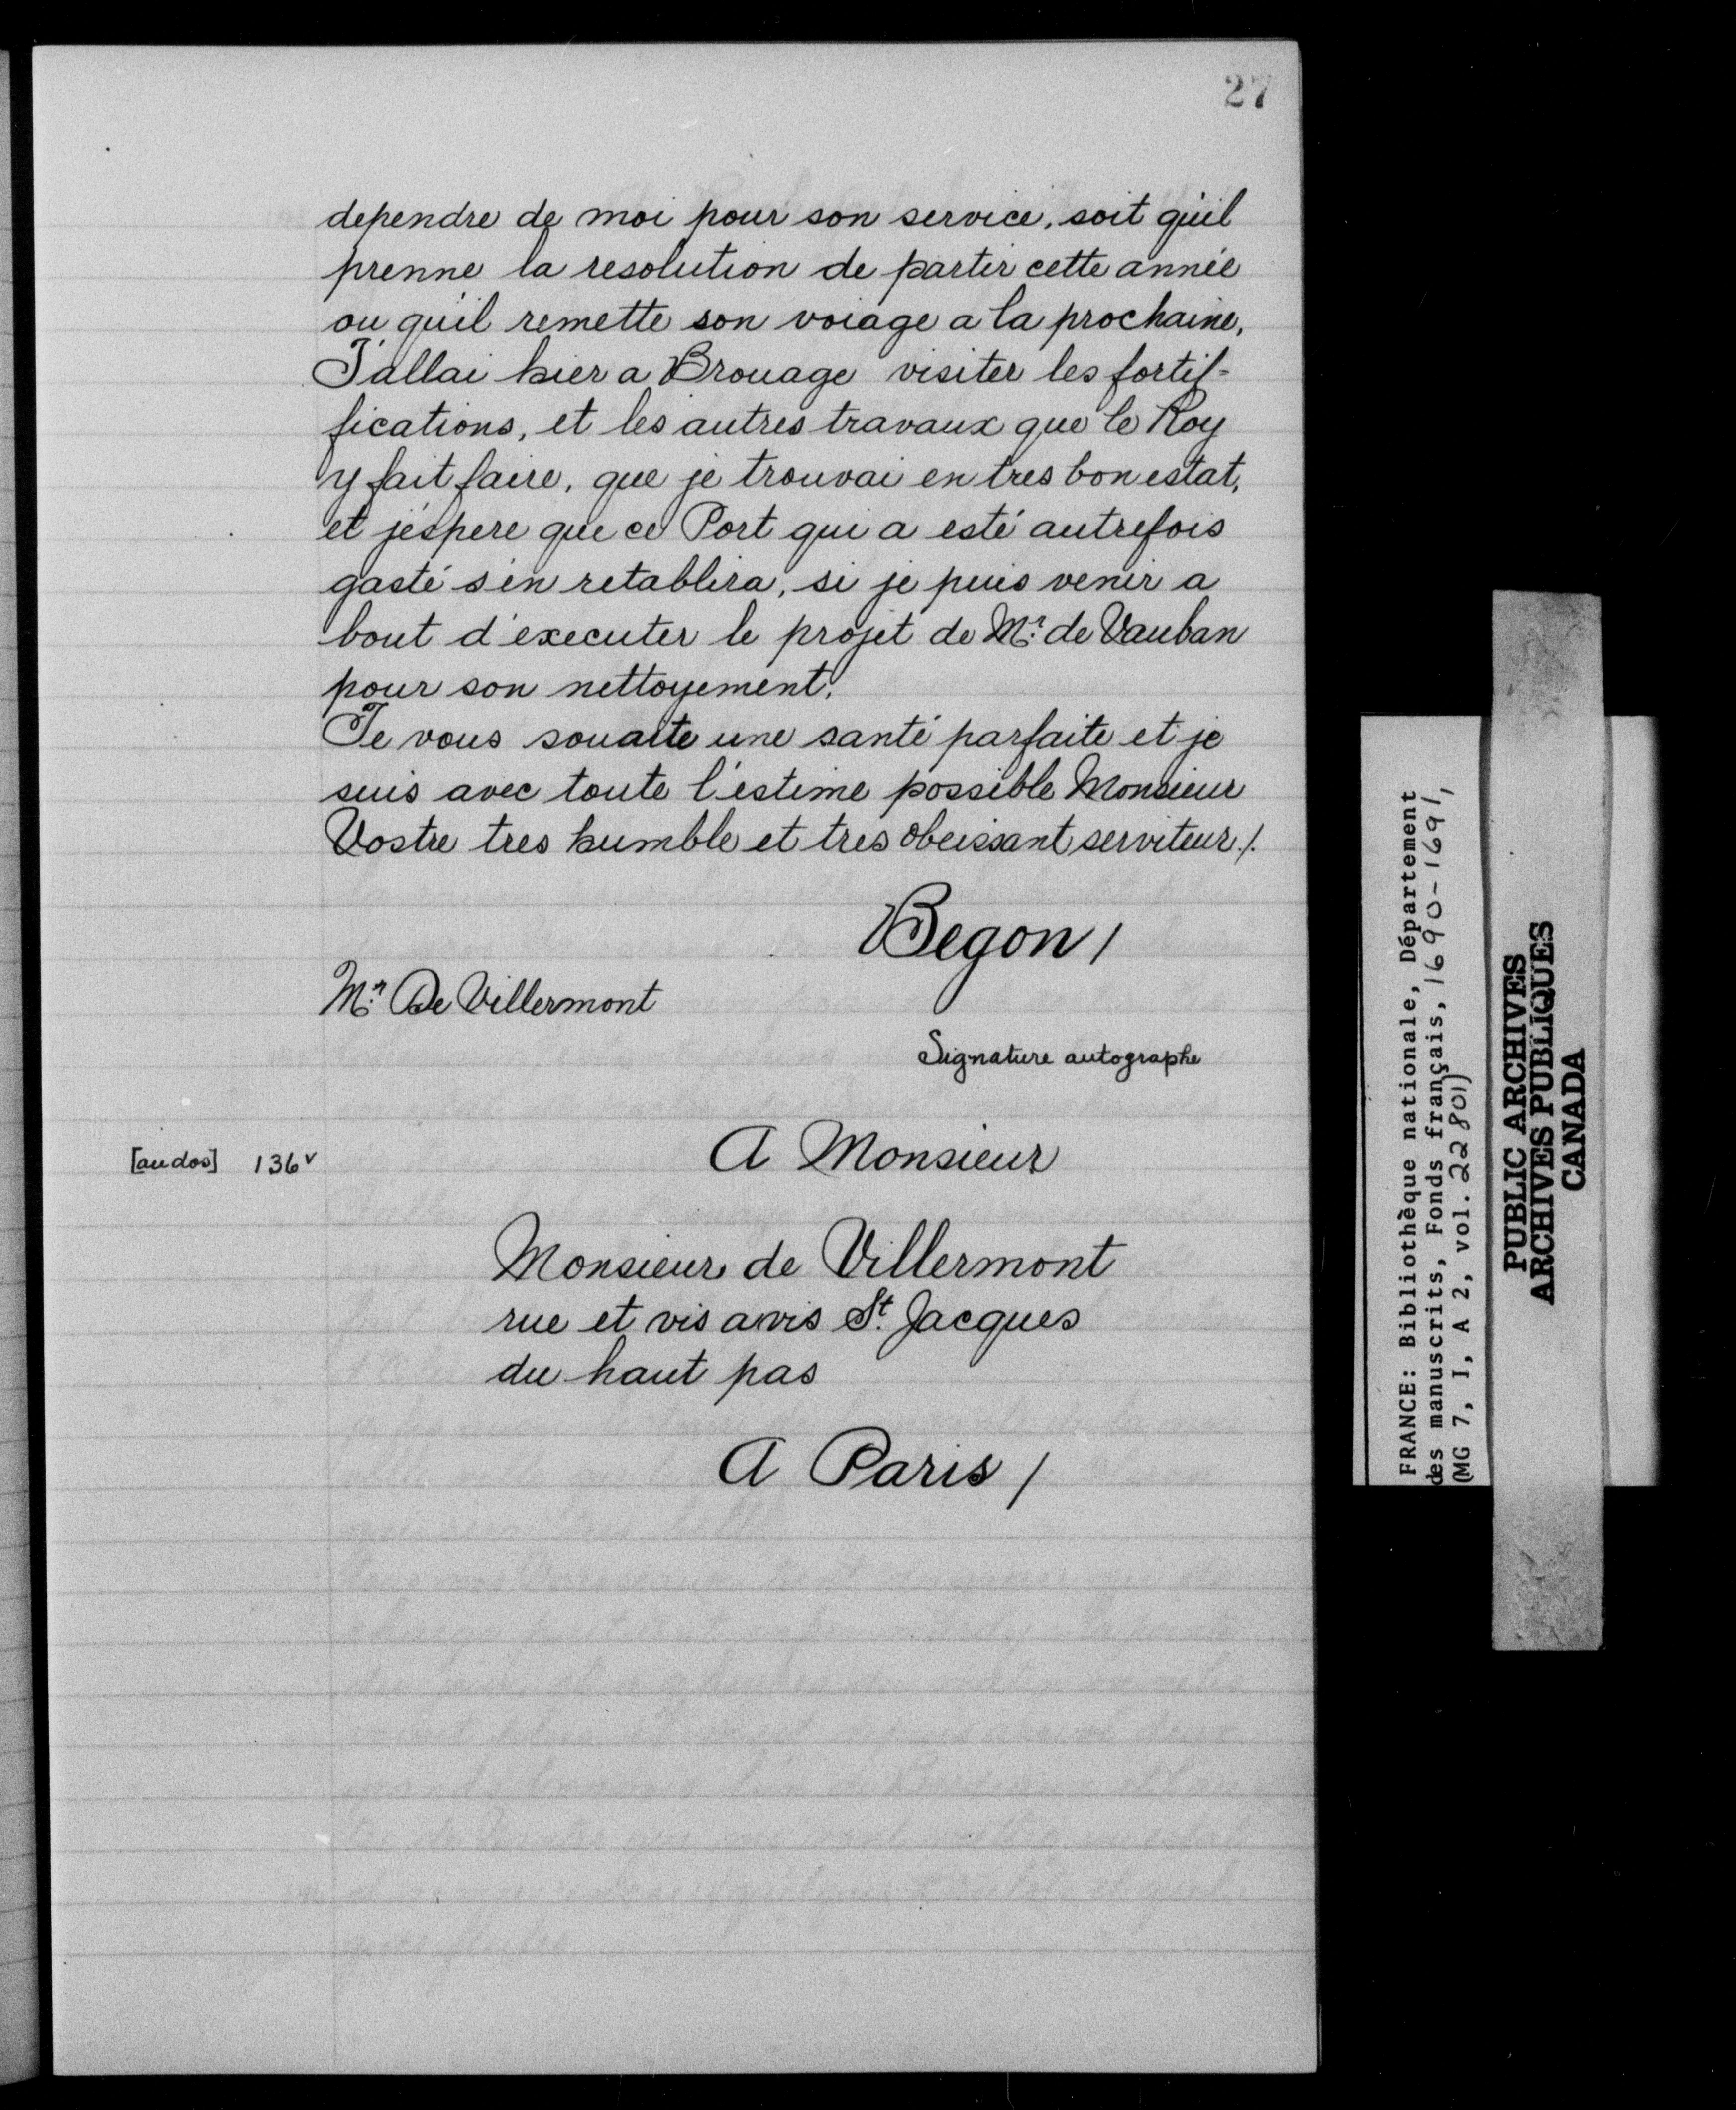 27
dependre de moi pour son service, soit qu'il
prenne la resolution de partir cette année
ou qu'il remette son voiage a la prochaine,
J'allai hier a Brouage visiter les fortif-
fications, et les autres travaux que le Roy
y fait faire, que je trouvai en tres bon estat,
et j'espere que ce Port qui a esté autrefois
gasté s'en retablira, si je puis venir a
bout d'executer le projet de Mr. de Vauban
pour son nettoyement.
Je vous souaite une santé parfaite et je
suis avec toute l'estime possible Monsieur
Vostre tres humble et tres obeissant serviteur ./.
Begon /
Mr. De Villermont
Signature autographe
[au dos] 136v
A Monsieur
Monsieur de Villermont
rue et vis a vis St. Jacques
du haut pas
A Paris /
FRANCE: Bibliothèque nationale, Département
des manuscrits, Fonds français, 1690-1691,
(MG 7, I, A 2, vol. 22801)
PUBLIC ARCHIVES
ARCHIVES PUBLIQUES
CANADA